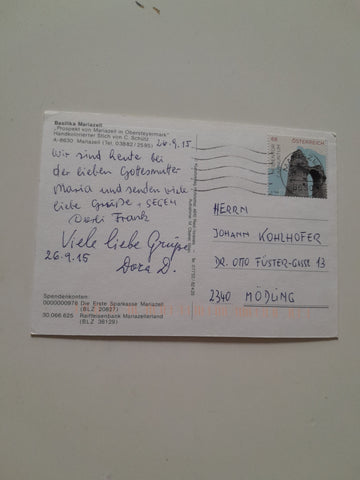 Basilika Mariazell
"Prospekt von Mariazell in Obersteyermark"
Handkolorierter Stich von C. Schütz
A-8630 Mariazell (Tel. 03882 / 2595)
26.9.15
Wir sind heute bei
der lieben Gottesmutter
Maria und senden viele
liebe Grüße + SEGEN
Frank
Viele liebe Grüße
26.9.15
Dora D.
Spendenkonten:
0000000976 Die Erste Sparkasse Mariazell
(BLZ 20827)
30.066.625 Raiffeisenbank Mariazellerland
(BLZ 38129)
68 ÖSTERREICH
HERRN
JOHANN KOHLHOFER
DR. OTTO FÜSTER-GASSE 13
2340 MÖDLING